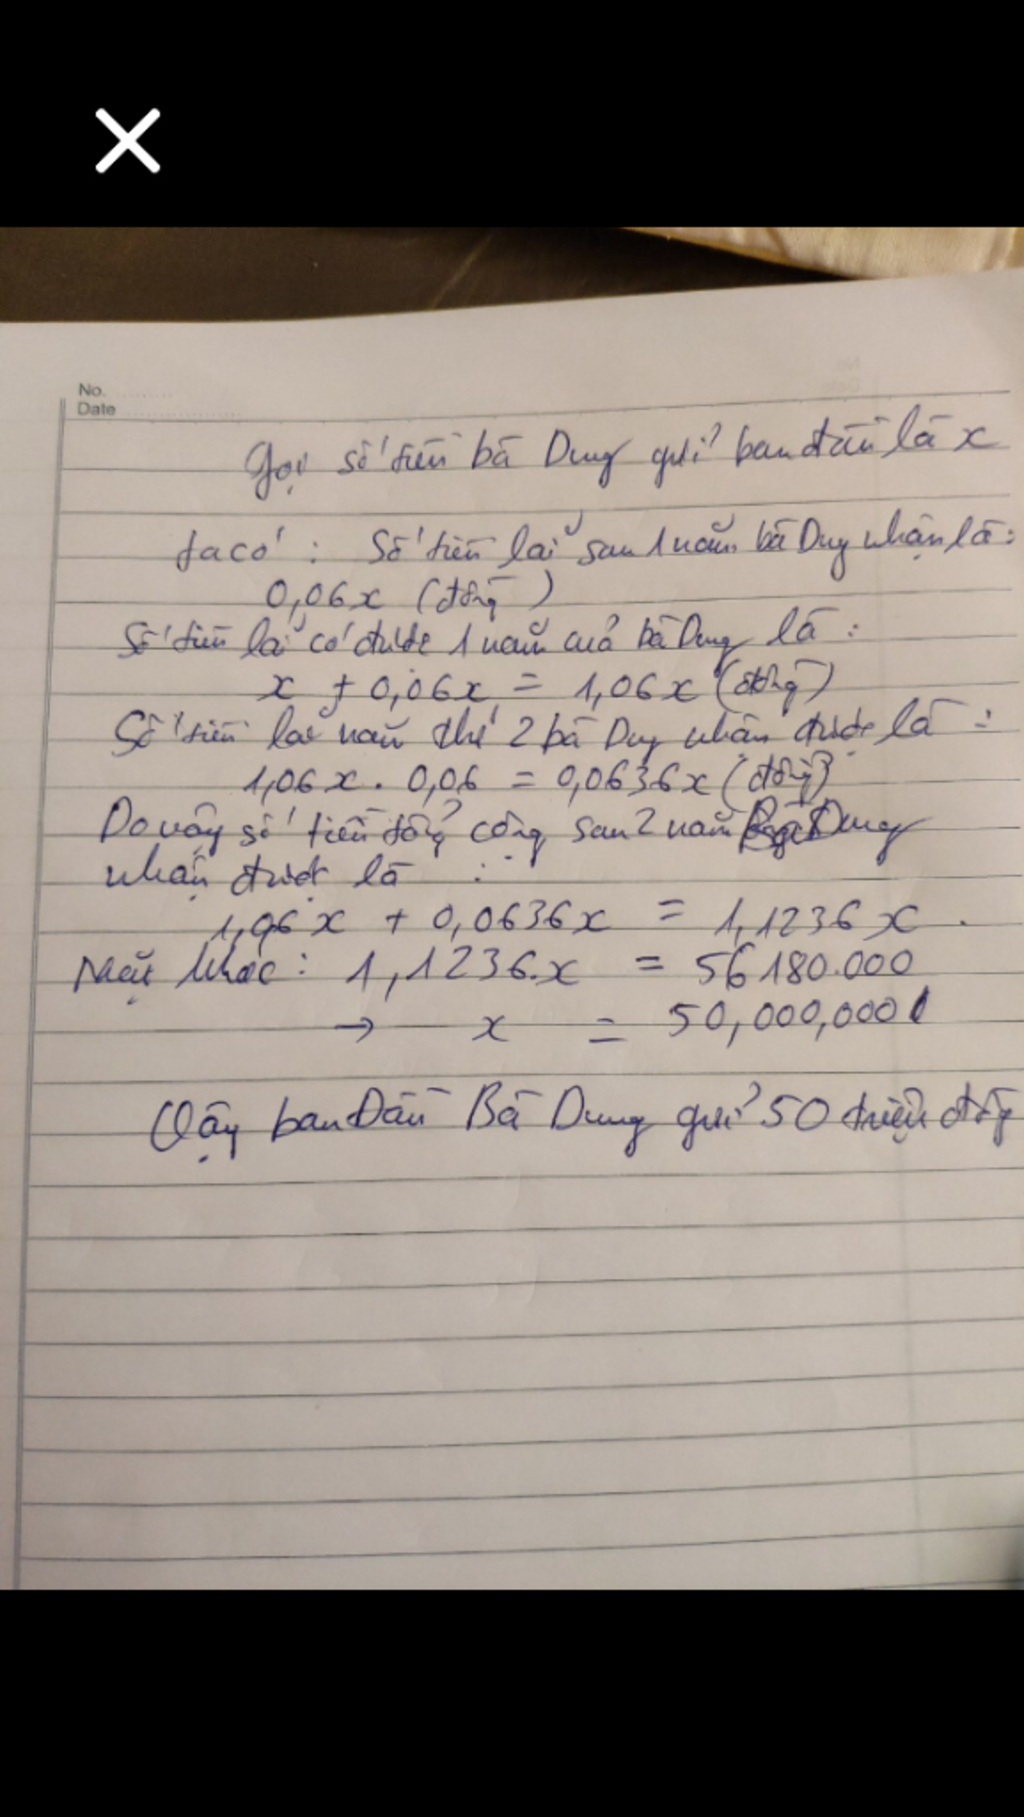 No.
Date
Gọi số tiền bà Dung gửi ban đầu là x
ta có : Số tiền lãi sau 1 năm bà Dung nhận là :
0,06x (đồng)
Số tiền lãi có được 1 năm của bà Dung là :
x + 0,06x = 1,06x (đồng)
Số tiền lãi năm thứ 2 bà Dung nhận được là :
1,06x . 0,06 = 0,0636x (đồng)
Do vậy số tiền tổng cộng sau 2 năm Bà Dung
nhận được là :
1,06x + 0,0636x = 1,1236x .
Mặt khác : 1,1236.x = 56180.000
→ x = 50,000,000
Vậy ban Đầu Bà Dung gửi 50 triệu đồng